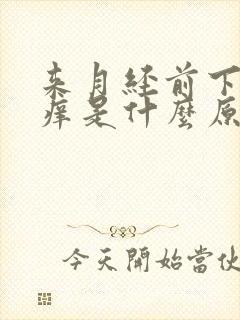 来月经前下
痒是什麼原
今天開始當伙